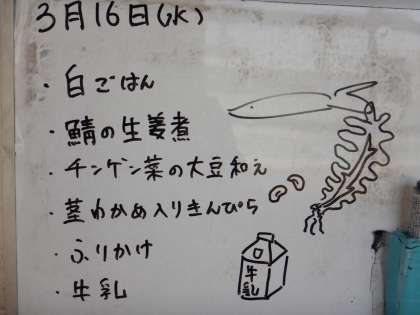 3月16日(水)
・白ごはん
・鯖の生姜煮
・チンゲン菜の大豆和え
・茎わかめ入りきんぴら
・ふりかけ
・牛乳
牛乳